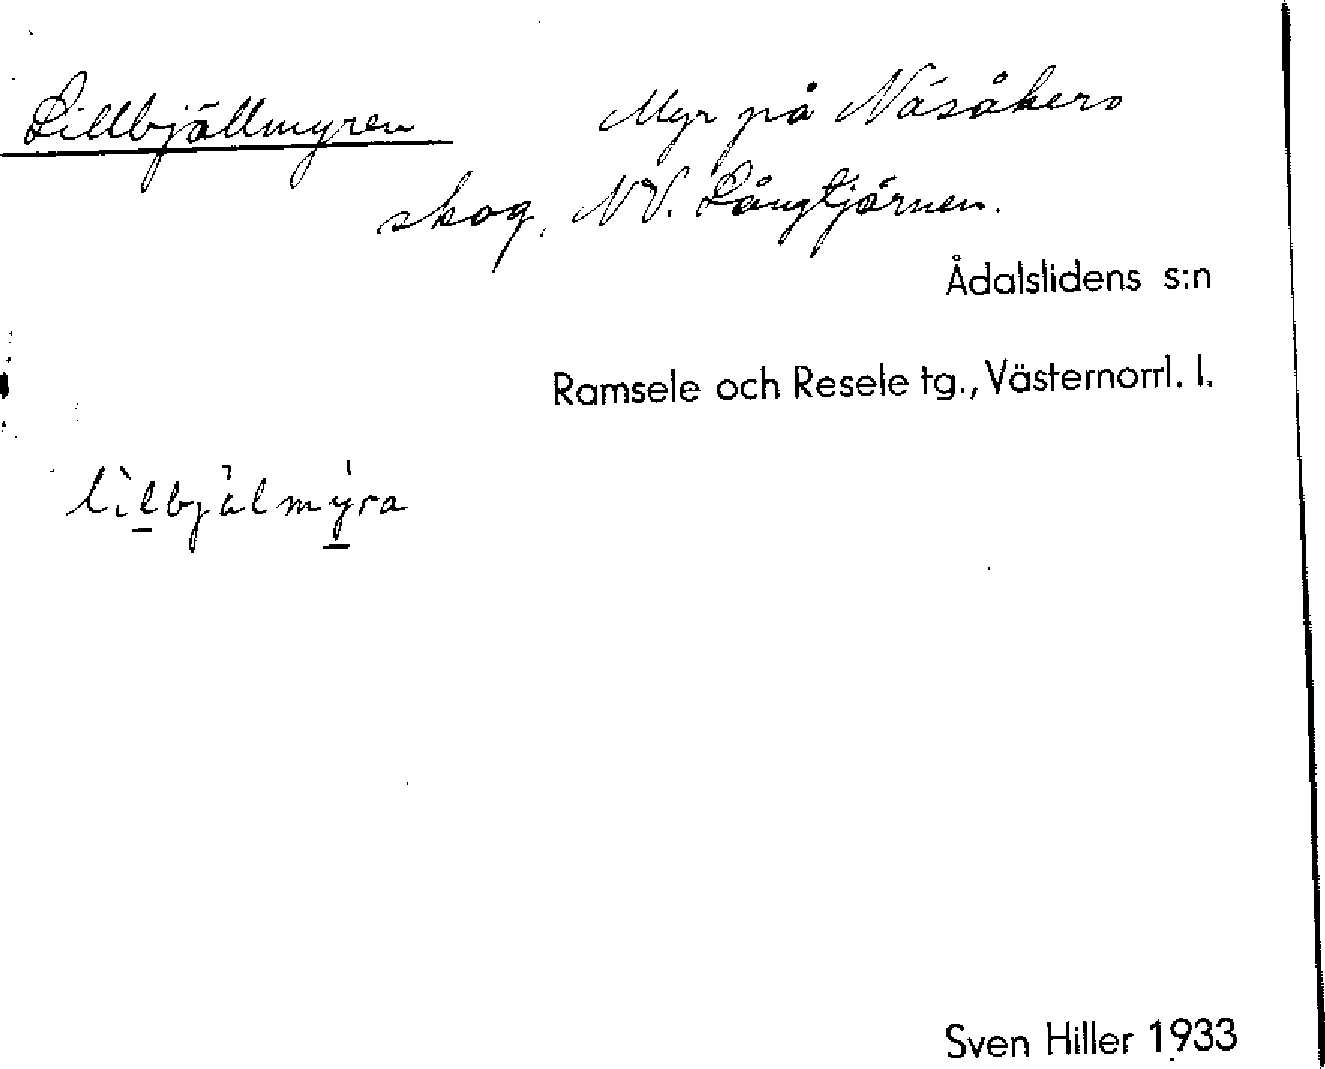 Lillbjällmyren Myr på Näsåkers
skog, NV. Långtjärnen.
Ådalslidens s:n
Ramsele och Resele tg., Västernorrl. l.
lìlbjälmýra
Sven Hiller 1933